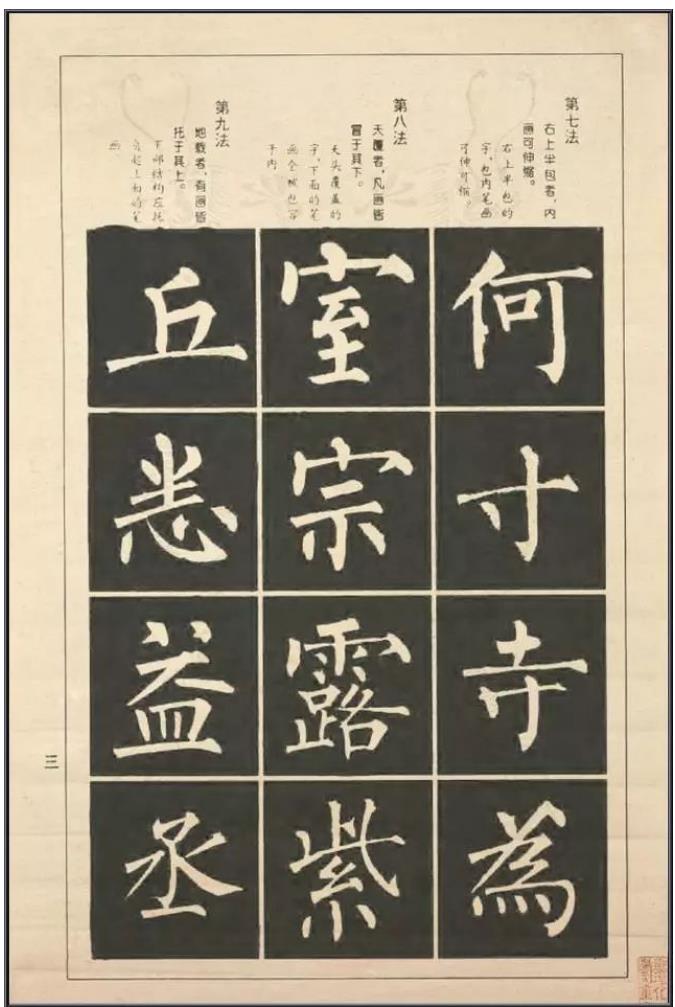 第七法
右上半包者，内
画可伸缩。
右上半包的
字，包内笔画
可伸可缩。
何寸寺為
第八法
天覆者，凡画皆
冒于其下。
天头覆盖的
字，下面的笔
画全被包罗
于内
室宗露紫
第九法
地载者，有画皆
托于其上。
下部结构应托
负起上面的笔
画
丘益丞
三